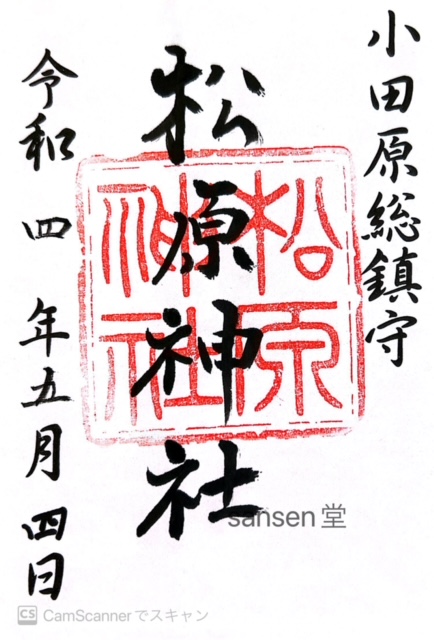 小田原総鎮守
松原神社
松原神社
令和四年五月四日
sansen堂
CS CamScannerでスキャン